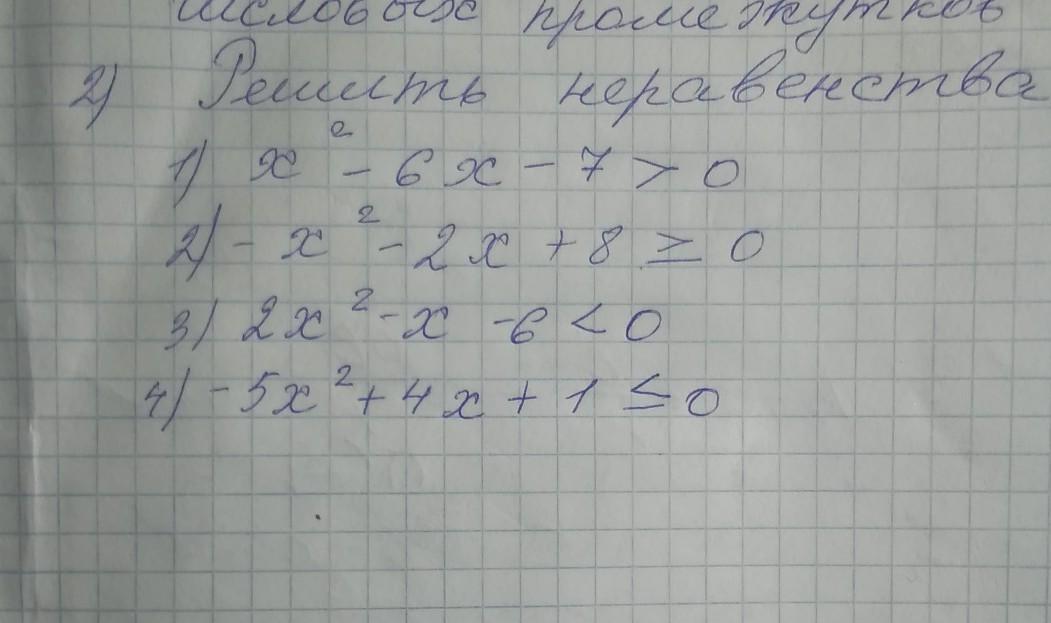 числовых промежутков
2) Решить неравенства
1) x² - 6x - 7 > 0
2) - x² - 2x + 8 ≥ 0
3) 2x² - x - 6 < 0
4) - 5x² + 4x + 1 ≤ 0